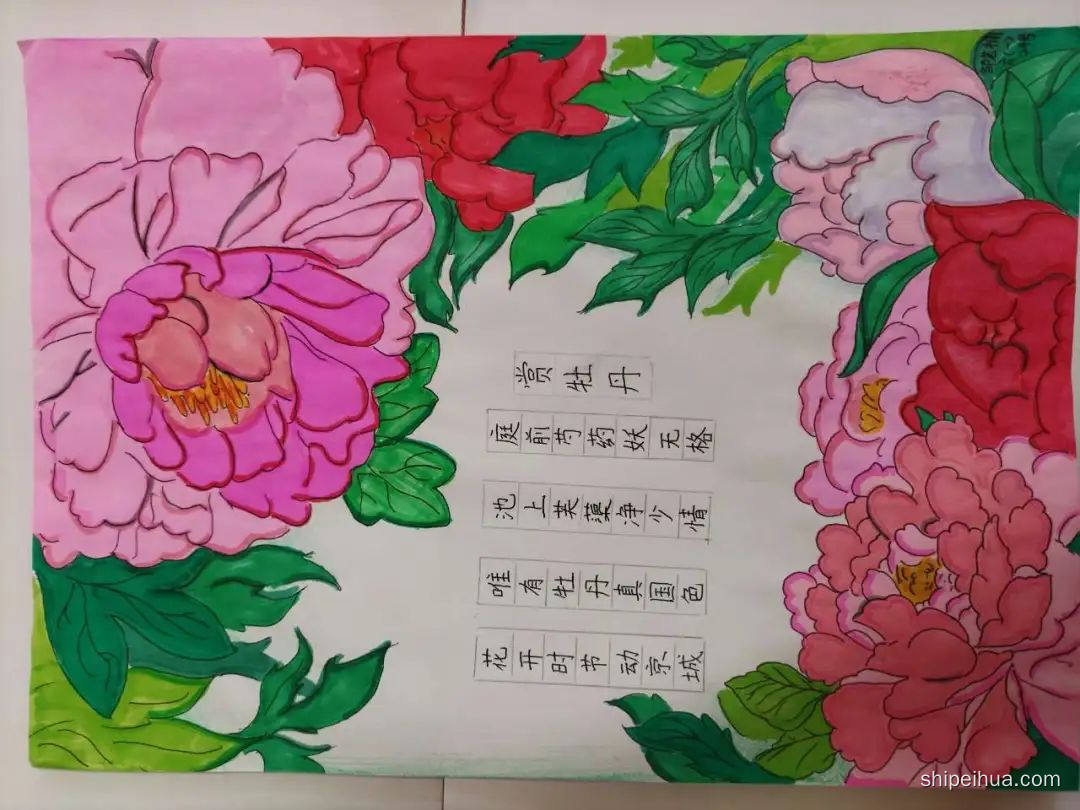 赏牡丹
庭前芍药妖无格
池上芙蕖净少情
唯有牡丹真国色
花开时节动京城
shipeihua.com